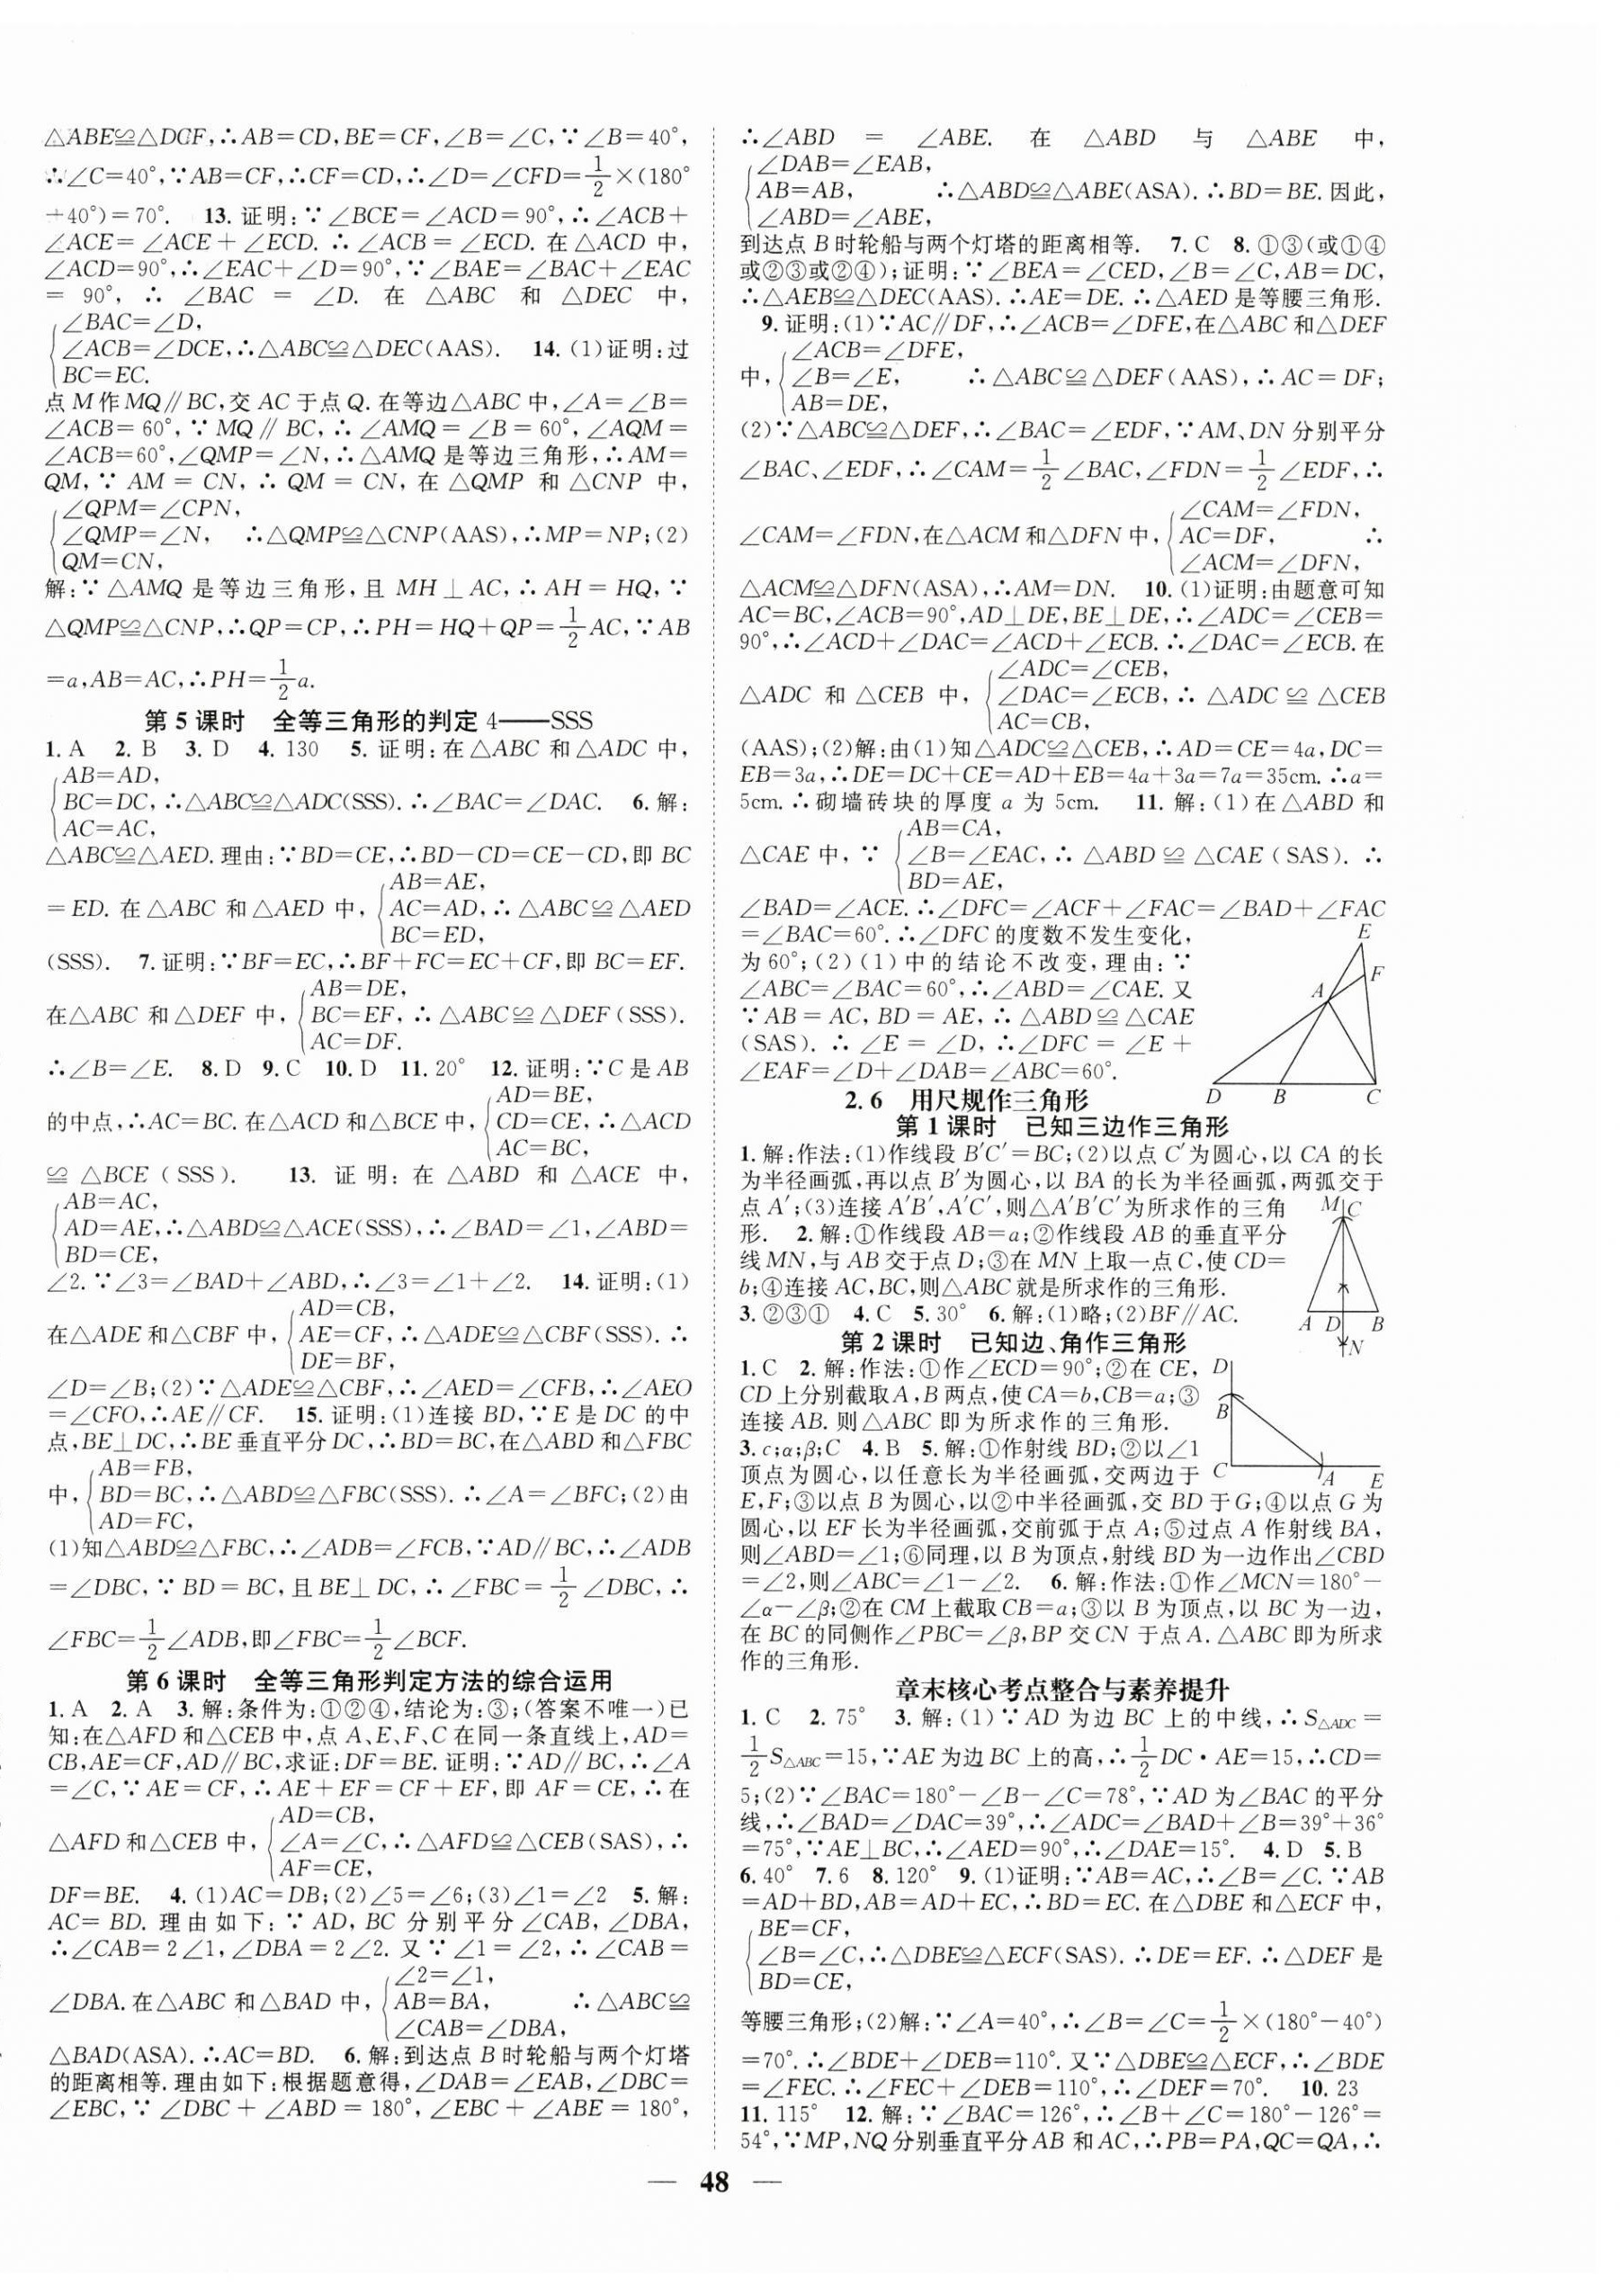 △ABE≌△DCF,∴AB=CD,BE=CF,∠B=∠C,∵∠B=40°,
∴∠C=40°,∵AB=CF,∴CF=CD,∴∠D=∠CFD=1/2×(180°
+40°)=70°. 13. 证明:∵∠BCE=∠ACD=90°,∴∠ACB+
∠ACE=∠ACE+∠ECD.∴∠ACB=∠ECD.在△ACD中,
∠ACD=90°,∴∠EAC+∠D=90°,∵∠BAE=∠BAC+∠EAC
=90°,∴∠BAC=∠D.在△ABC和△DEC中,
∠BAC=∠D,
∠ACB=∠DCE,∴△ABC≌△DEC(AAS). 14.(1)证明:过
BC=EC.
点M作MQ∥BC,交AC于点Q.在等边△ABC中,∠A=∠B=
∠ACB=60°,∵MQ∥BC,∴∠AMQ=∠B=60°,∠AQM=
∠ACB=60°,∠QMP=∠N,∴△AMQ是等边三角形,∴AM=
QM,∵AM=CN,∴QM=CN,在△QMP和△CNP中,
∠QPM=∠CPN,
∠QMP=∠N, ∴△QMP≌△CNP(AAS),∴MP=NP;(2)
QM=CN,
解:∵△AMQ是等边三角形,且MH⊥AC,∴AH=HQ,∵
△QMP≌△CNP,∴QP=CP,∴PH=HQ+QP=1/2AC,∵AB
=a,AB=AC,∴PH=1/2a.
第5课时 全等三角形的判定4——SSS
1. A 2. B 3. D 4. 130 5. 证明:在△ABC和△ADC中,
AB=AD,
BC=DC,∴△ABC≌△ADC(SSS).∴∠BAC=∠DAC. 6.解:
AC=AC,
△ABC≌△AED.理由:∵BD=CE,∴BD-CD=CE-CD,即BC
AB=AE,
=ED.在△ABC和△AED中, AC=AD,∴△ABC≌△AED
BC=ED,
(SSS). 7.证明:∵BF=EC,∴BF+FC=EC+CF,即BC=EF.
AB=DE,
在△ABC和△DEF中, BC=EF,∴△ABC≌△DEF(SSS).
AC=DF.
∴∠B=∠E. 8. D 9. C 10. D 11. 20° 12. 证明:∵C是AB
AD=BE,
的中点,∴AC=BC.在△ACD和△BCE中, CD=CE,∴△ACD
AC=BC,
≌△BCE(SSS). 13. 证明:在△ABD和△ACE中,
AB=AC,
AD=AE,∴△ABD≌△ACE(SSS),∴∠BAD=∠1,∠ABD=
BD=CE,
∠2.∵∠3=∠BAD+∠ABD,∴∠3=∠1+∠2. 14. 证明:(1)
AD=CB,
在△ADE和△CBF中, AE=CF,∴△ADE≌△CBF(SSS).∴
DE=BF,
∠D=∠B;(2)∵△ADE≌△CBF,∴∠AED=∠CFB,∴∠AEO
=∠CFO,∴AE∥CF. 15. 证明:(1)连接BD,∵E是DC的中
点,BE⊥DC,∴BE垂直平分DC,∴BD=BC,在△ABD和△FBC
AB=FB,
中, BD=BC,∴△ABD≌△FBC(SSS).∴∠A=∠BFC;(2)由
AD=FC,
(1)知△ABD≌△FBC,∴∠ADB=∠FCB,∵AD∥BC,∴∠ADB
=∠DBC,∵BD=BC,且BE⊥DC,∴∠FBC=1/2∠DBC,∴
∠FBC=1/2∠ADB,即∠FBC=1/2∠BCF.
第6课时 全等三角形判定方法的综合运用
1. A 2. A 3. 解:条件为:①②④,结论为:③;(答案不唯一)已
知:在△AFD和△CEB中,点A、E、F、C在同一条直线上,AD=
CB,AE=CF,AD∥BC,求证:DF=BE.证明:∵AD∥BC,∴∠A
=∠C,∵AE=CF,∴AE+EF=CF+EF,即AF=CE,∴在
AD=CB,
△AFD和△CEB中, ∠A=∠C,∴△AFD≌△CEB(SAS),∴
AF=CE,
DF=BE. 4.(1)AC=DB;(2)∠5=∠6;(3)∠1=∠2 5.解:
AC=BD.理由如下:∵AD,BC分别平分∠CAB,∠DBA,
∴∠CAB=2∠1,∠DBA=2∠2.又∵∠1=∠2,∴∠CAB=
∠2=∠1,
∠DBA.在△ABC和△BAD中, AB=BA, ∴△ABC≌
∠CAB=∠DBA,
△BAD(ASA).∴AC=BD. 6.解:到达点B时轮船与两个灯塔
的距离相等.理由如下:根据题意得,∠DAB=∠EAB,∠DBC=
∠EBC,∵∠DBC+∠ABD=180°,∠EBC+∠ABE=180°,
∴∠ABD=∠ABE.在△ABD与△ABE中,
∠DAB=∠EAB,
AB=AB, ∴△ABD≌△ABE(ASA).∴BD=BE.因此,
∠ABD=∠ABE,
到达点B时轮船与两个灯塔的距离相等. 7. C 8. ①③(或①④
或②③或②④);证明:∵∠BEA=∠CED,∠B=∠C,AB=DC,
∴△AEB≌△DEC(AAS).∴AE=DE.∴△AED是等腰三角形.
9.证明:(1)∵AC∥DF,∴∠ACB=∠DFE,在△ABC和△DEF
∠ACB=∠DFE,
中, ∠B=∠E, ∴△ABC≌△DEF(AAS),∴AC=DF;
AB=DE,
(2)∵△ABC≌△DEF,∴∠BAC=∠EDF,∵AM、DN分别平分
∠BAC、∠EDF,∴∠CAM=1/2∠BAC,∠FDN=1/2∠EDF,∴
∠CAM=∠FDN,
∠CAM=∠FDN,在△ACM和△DFN中, AC=DF, ∴
∠ACM=∠DFN,
△ACM≌△DFN(ASA),∴AM=DN. 10.(1)证明:由题意可知
AC=BC,∠ACB=90°,AD⊥DE,BE⊥DE,∴∠ADC=∠CEB=
90°,∴∠ACD+∠DAC=∠ACD+∠ECB.∴∠DAC=∠ECB.在
∠ADC=∠CEB,
△ADC和△CEB中, ∠DAC=∠ECB,∴△ADC≌△CEB
AC=CB,
(AAS);(2)解:由(1)知△ADC≌△CEB,∴AD=CE=4a,DC=
EB=3a,∴DE=DC+CE=AD+EB=4a+3a=7a=35cm.∴a=
5cm.∴砌墙砖块的厚度a为5cm. 11. 解:(1)在△ABD和
AB=CA,
△CAE中,∵ ∠B=∠EAC,∴△ABD≌△CAE(SAS).∴
BD=AE,
∠BAD=∠ACE.∴∠DFC=∠ACF+∠FAC=∠BAD+∠FAC
=∠BAC=60°.∴∠DFC的度数不发生变化,
为60°;(2)(1)中的结论不改变,理由:∵
∠ABC=∠BAC=60°,∴∠ABD=∠CAE.又
∵AB=AC,BD=AE,∴△ABD≌△CAE
(SAS).∴∠E=∠D,∴∠DFC=∠E+
∠EAF=∠D+∠DAB=∠ABC=60°.
E
F
A
D B C
2.6 用尺规作三角形
第1课时 已知三边作三角形
1.解:作法:(1)作线段B′C′=BC;(2)以点C′为圆心,以CA的长
为半径画弧,再以点B′为圆心,以BA的长为半径画弧,两弧交于
点A′;(3)连接A′B′,A′C′,则△A′B′C′为所求作的三角
形. 2.解:①作线段AB=a;②作线段AB的垂直平分
线MN,与AB交于点D;③在MN上取一点C,使CD=
b;④连接AC,BC,则△ABC就是所求作的三角形.
3. ②③① 4. C 5. 30° 6. 解:(1)略;(2)BF∥AC.
M C
A D B
N
第2课时 已知边、角作三角形
1. C 2. 解:作法:①作∠ECD=90°;②在CE,
CD上分别截取A,B两点,使CA=b,CB=a;③
连接AB.则△ABC即为所求作的三角形.
3. c;α;β;C 4. B 5. 解:①作射线BD;②以∠1
顶点为圆心,以任意长为半径画弧,交两边于
D
B
C A E
E,F;③以点B为圆心,以②中半径画弧,交BD于G;④以点G为
圆心,以EF长为半径画弧,交前弧于点A;⑤过点A作射线BA,
则∠ABD=∠1;⑥同理,以B为顶点,射线BD为一边作出∠CBD
=∠2,则∠ABC=∠1-∠2. 6. 解:作法:①作∠MCN=180°-
∠α-∠β;②在CM上截取CB=a;③以B为顶点,以BC为一边,
在BC的同侧作∠PBC=∠β,BP交CN于点A.△ABC即为所求
作的三角形.
章末核心考点整合与素养提升
1. C 2. 75° 3. 解:(1)∵AD为边BC上的中线,∴S△ADC=
1/2S△ABC=15,∵AE为边BC上的高,∴1/2DC·AE=15,∴CD=
5;(2)∵∠BAC=180°-∠B-∠C=78°,∵AD为∠BAC的平分
线,∴∠BAD=∠DAC=39°,∴∠ADC=∠BAD+∠B=39°+36°
=75°,∵AE⊥BC,∴∠AED=90°,∴∠DAE=15°. 4. D 5. B
6. 40° 7. 6 8. 120° 9. (1)证明:∵AB=AC,∴∠B=∠C.∵AB
=AD+BD,AB=AD+EC,∴BD=EC.在△DBE和△ECF中,
BE=CF,
∠B=∠C,∴△DBE≌△ECF(SAS).∴DE=EF.∴△DEF是
BD=CE,
等腰三角形;(2)解:∵∠A=40°,∴∠B=∠C=1/2×(180°-40°)
=70°.∴∠BDE+∠DEB=110°.又∵△DBE≌△ECF,∴∠BDE
=∠FEC.∴∠FEC+∠DEB=110°,∴∠DEF=70°. 10. 23
11. 115° 12. 解:∵∠BAC=126°,∴∠B+∠C=180°-126°=
54°,∵MP,NQ分别垂直平分AB和AC,∴PB=PA,QC=QA,∴
— 48 —